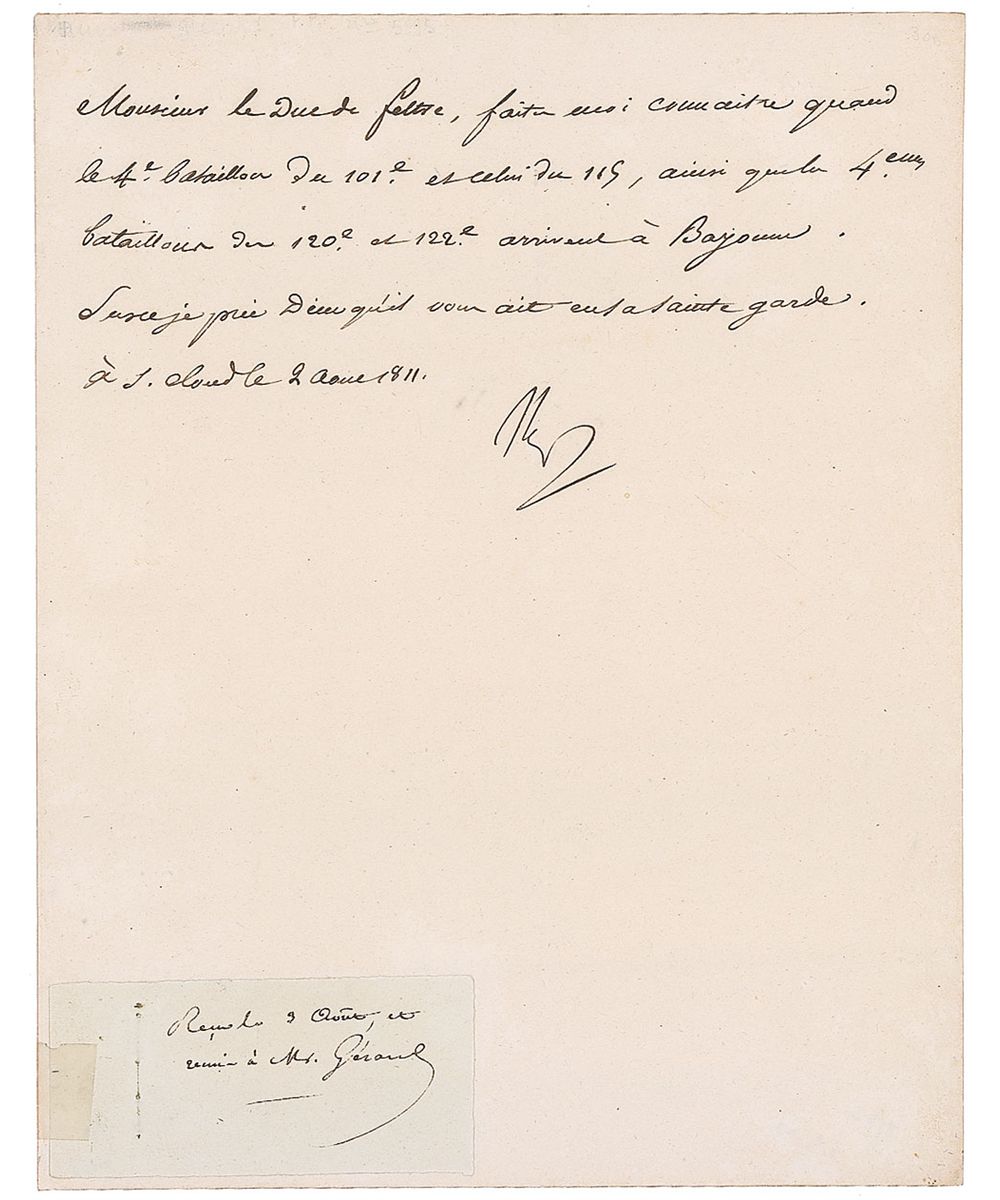 Monsieur le Duc de feltre, faites moi connaitre quand
le 4e. bataillon du 101e. et celui du 115, ainsi que les 4.emes
bataillons des 120e. et 122e. arrivent à Bayonne.
Sur ce je prie Dieu qu'il vous ait en sa sainte garde.
à S. Cloud le 2 aout 1811.
Np
Reçu le 3 Août, et
remis à Mr. Gérard